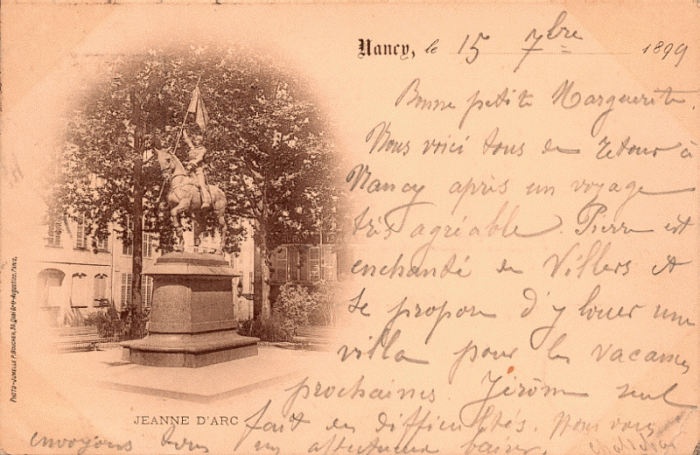 Nancy, le 15 7bre 1899
Bonne petite Marguerite
Nous voici tous de retour à
Nancy après un voyage
très agréable. Pierre est
enchanté de Villers et
se propose d'y louer une
villa pour les vacances
prochaines. Jérôme seul
fait des difficultés. Nous vous
envoyons tous un affectueux baiser.
JEANNE D'ARC